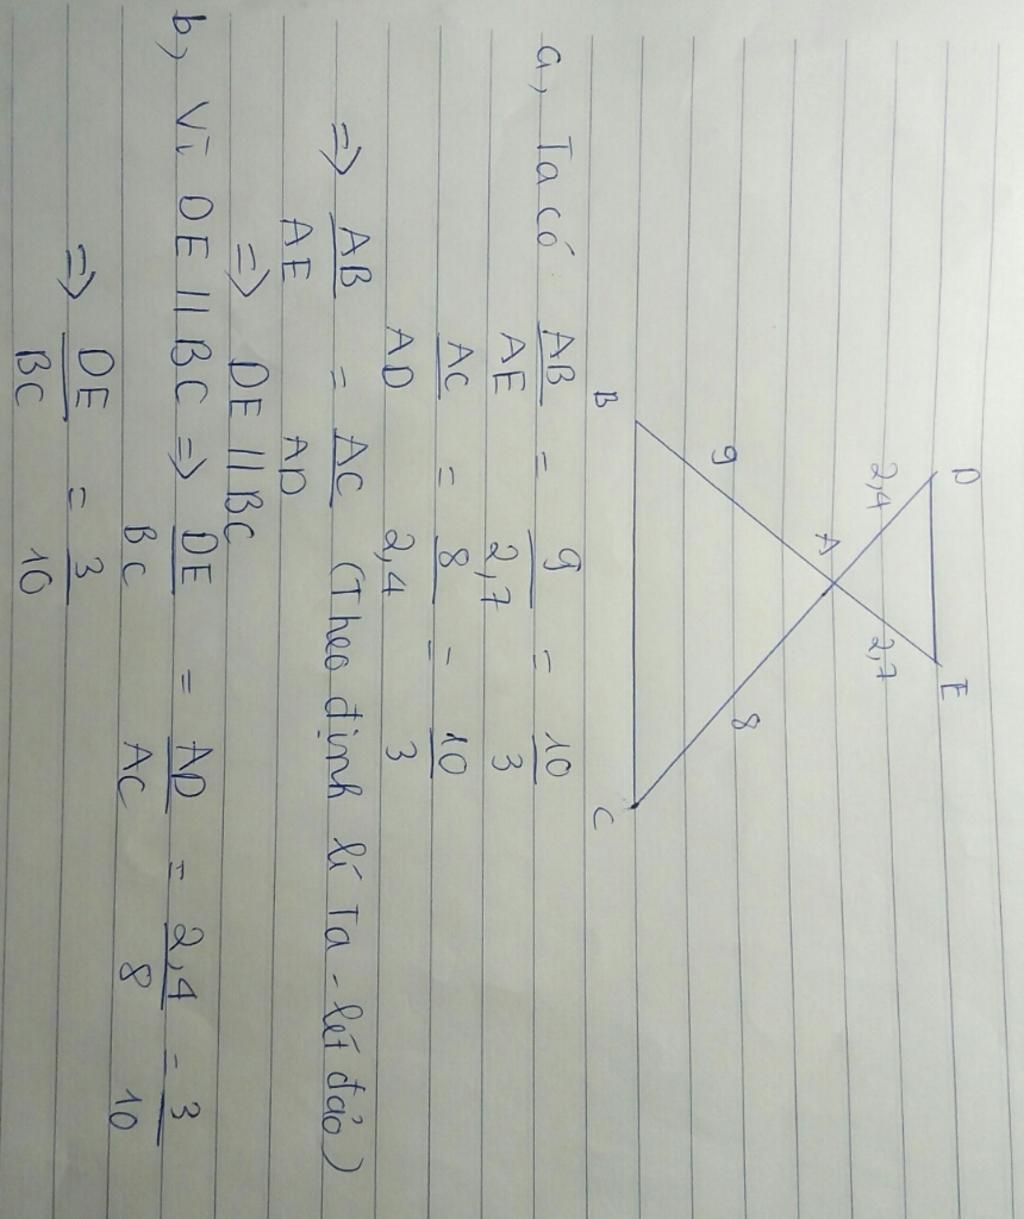 D E
2,4 2,7
A
9 8
B C
a, Ta có AB/AE = 9/2,7 = 10/3
AC/AD = 8/2,4 = 10/3
=> AB/AE = AC/AD (Theo định lí Ta-lét đảo)
=> DE // BC
b, Vì DE // BC => DE/BC = AD/AC = 2,4/8 = 3/10
=> DE/BC = 3/10